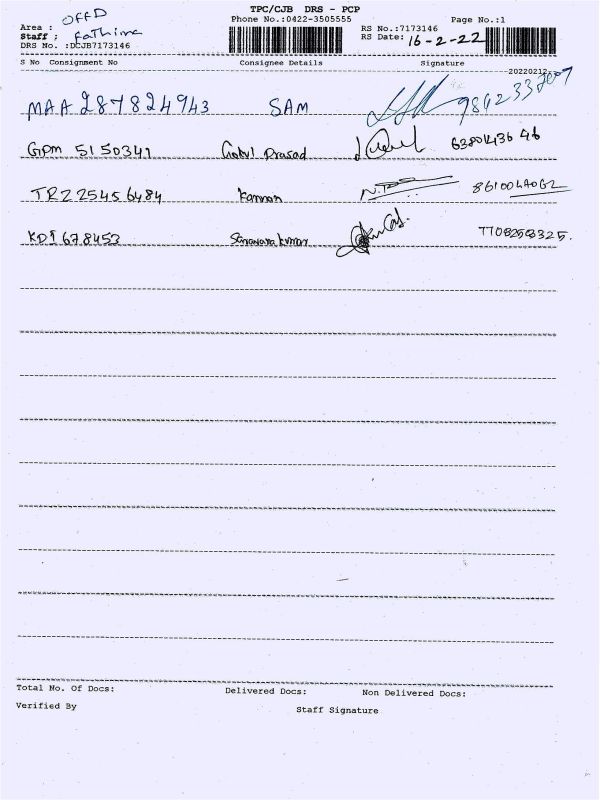 TPC/CJB DRS - PCP
Phone No.:0422-3505555 Page No.:1
Area : OFFD
Staff ; Fathima RS No.:7173146
DRS No. :DCJB7173146 RS Date: 16-2-22
S No Consignment No Consignee Details Signature
20220212
MAA 287824943 SAM
GPM 5150341 Gokul Prasad
TRZ 25456484 Kannan
KDI 678453
Total No. Of Docs: Delivered Docs: Non Delivered Docs:
Verified By Staff Signature